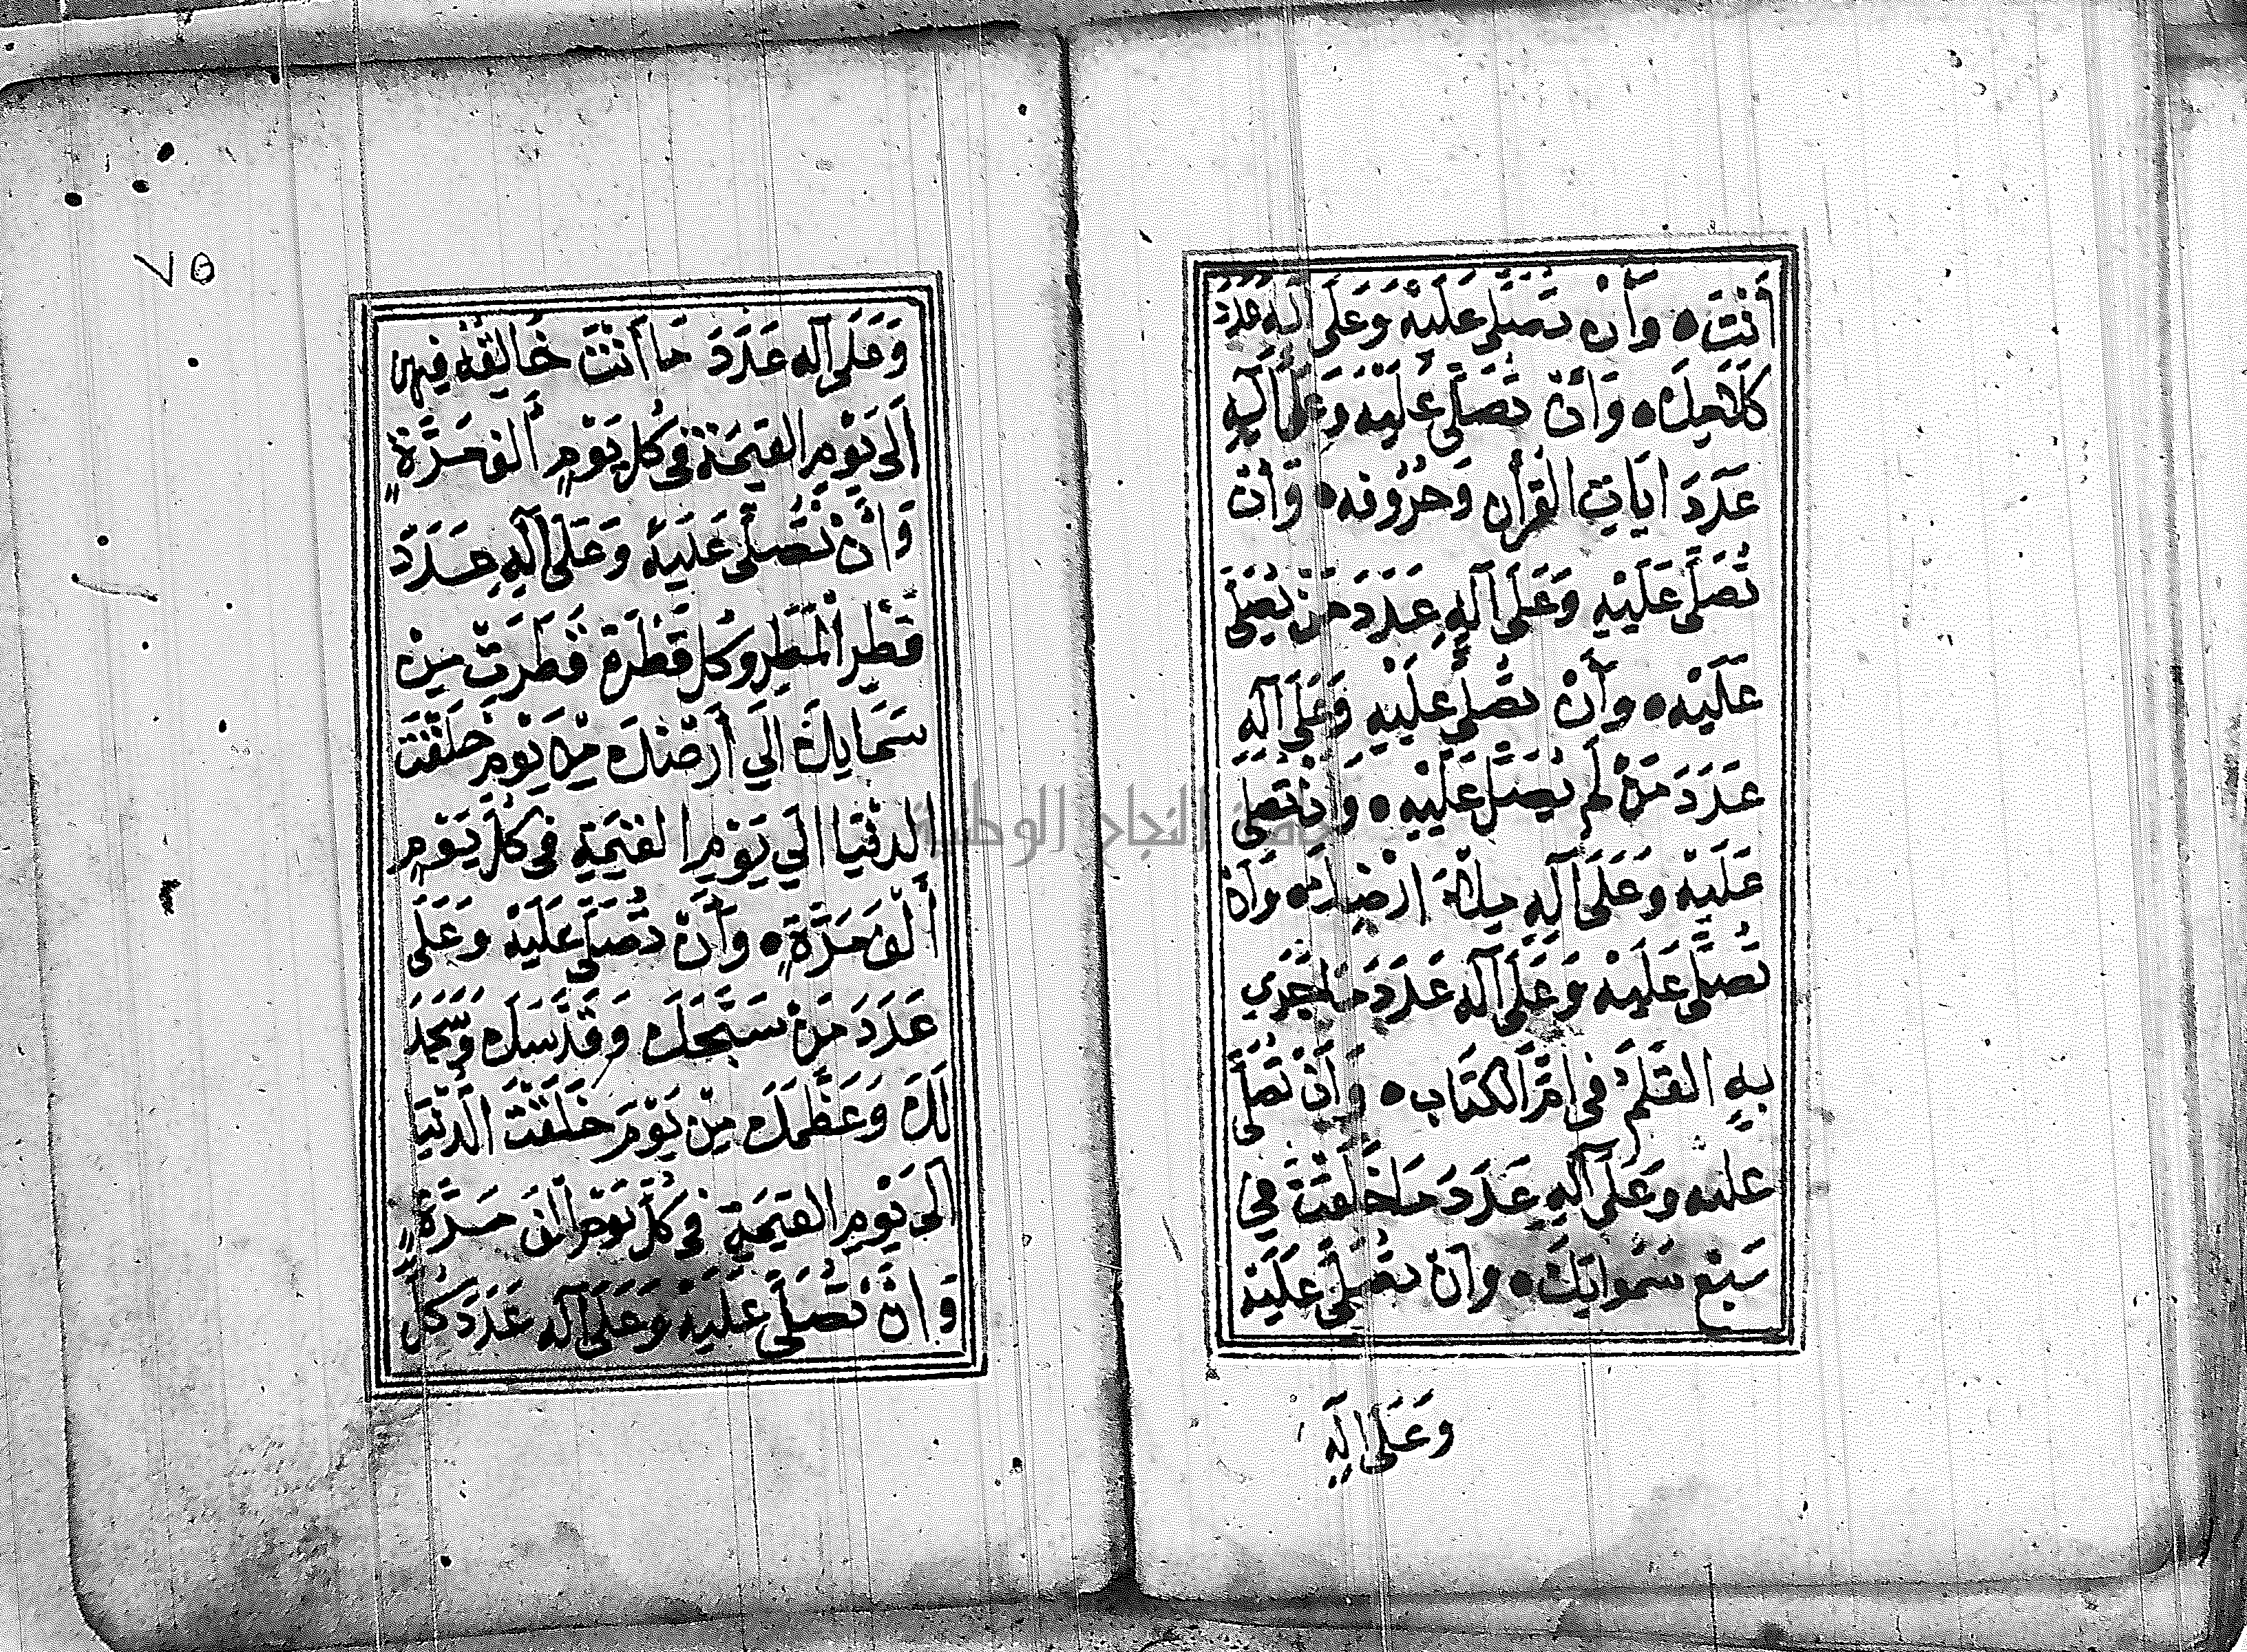 أَنْتَ ٥ وَأَنْ تُصَلِّيَ عَلَيْهِ وَعَلَى آلِهِ عَدَدَ
كَلَامِكَ ٥ وَأَنْ تُصَلِّيَ عَلَيْهِ وَعَلَى آلِهِ
عَدَدَ اٰيَاتِ الْقُرْأٰنِ وَحُرُوفِهِ ٥ وَأَنْ
تُصَلِّيَ عَلَيْهِ وَعَلَى آلِهِ عَدَدَ مَنْ يُصَلِّي
عَلَيْهِ ٥ وَأَنْ تُصَلِّيَ عَلَيْهِ وَعَلَى آلِهِ
عَدَدَ مَنْ لَمْ يُصَلِّ عَلَيْهِ ٥ وَأَنْ تُصَلِّيَ
عَلَيْهِ وَعَلَى آلِهِ مِلْأَ أَرْضِكَ ٥ وَأَنْ
تُصَلِّيَ عَلَيْهِ وَعَلَى آلِهِ عَدَدَ مَا جَرَي
بِهِ الْقَلَمُ فِي أُمِّ الْكِتَابِ ٥ وَأَنْ تُصَلِّيَ
عَلَيْهِ وَعَلَى آلِهِ عَدَدَ مَا خَلَقْتَ فِي
سَبْعِ سَمٰوَاتِكَ ٥ وَأَنْ تُصَلِّيَ عَلَيْهِ
وَعَلَى آلِهِ
٧٥
وَعَلَى آلِهِ عَدَدَ مَا أَنْتَ خَالِقُهُ فِيهِنَّ
اِلَى يَوْمِ الْقِيٰمَةِ فِي كُلِّ يَوْمٍ أَلْفَ مَرَّةٍ
وَأَنْ تُصَلِّيَ عَلَيْهِ وَعَلَى آلِهِ عَدَدَ
قَطْرِ الْمَطَرِ وَكُلِّ قَطْرَةٍ قَطَرَتْ مِنْ
سَمَايِكَ اِلَي أَرْضِكَ مِنْ يَوْمِ خَلَقْتَ
الدُّنْيَا اِلَي يَوْمِ الْقِيٰمَةِ فِي كُلِّ يَوْمٍ
أَلْفَ مَرَّةٍ ٥ وَأَنْ تُصَلِّيَ عَلَيْهِ وَعَلَى
عَدَدَ مَنْ سَبَّحَكَ وَقَدَّسَكَ وَسَجَدَ
لَكَ وَعَظَّمَكَ مِنْ يَوْمَ خَلَقْتَ الدُّنْيَا
اِلَى يَوْمِ الْقِيٰمَةِ فِي كُلِّ يَوْمٍ أَلْفَ مَرَّةٍ
وَأَنْ تُصَلِّيَ عَلَيْهِ وَعَلَى آلِهِ عَدَدَ كُلِّ
جامعة النجاح الوطنية